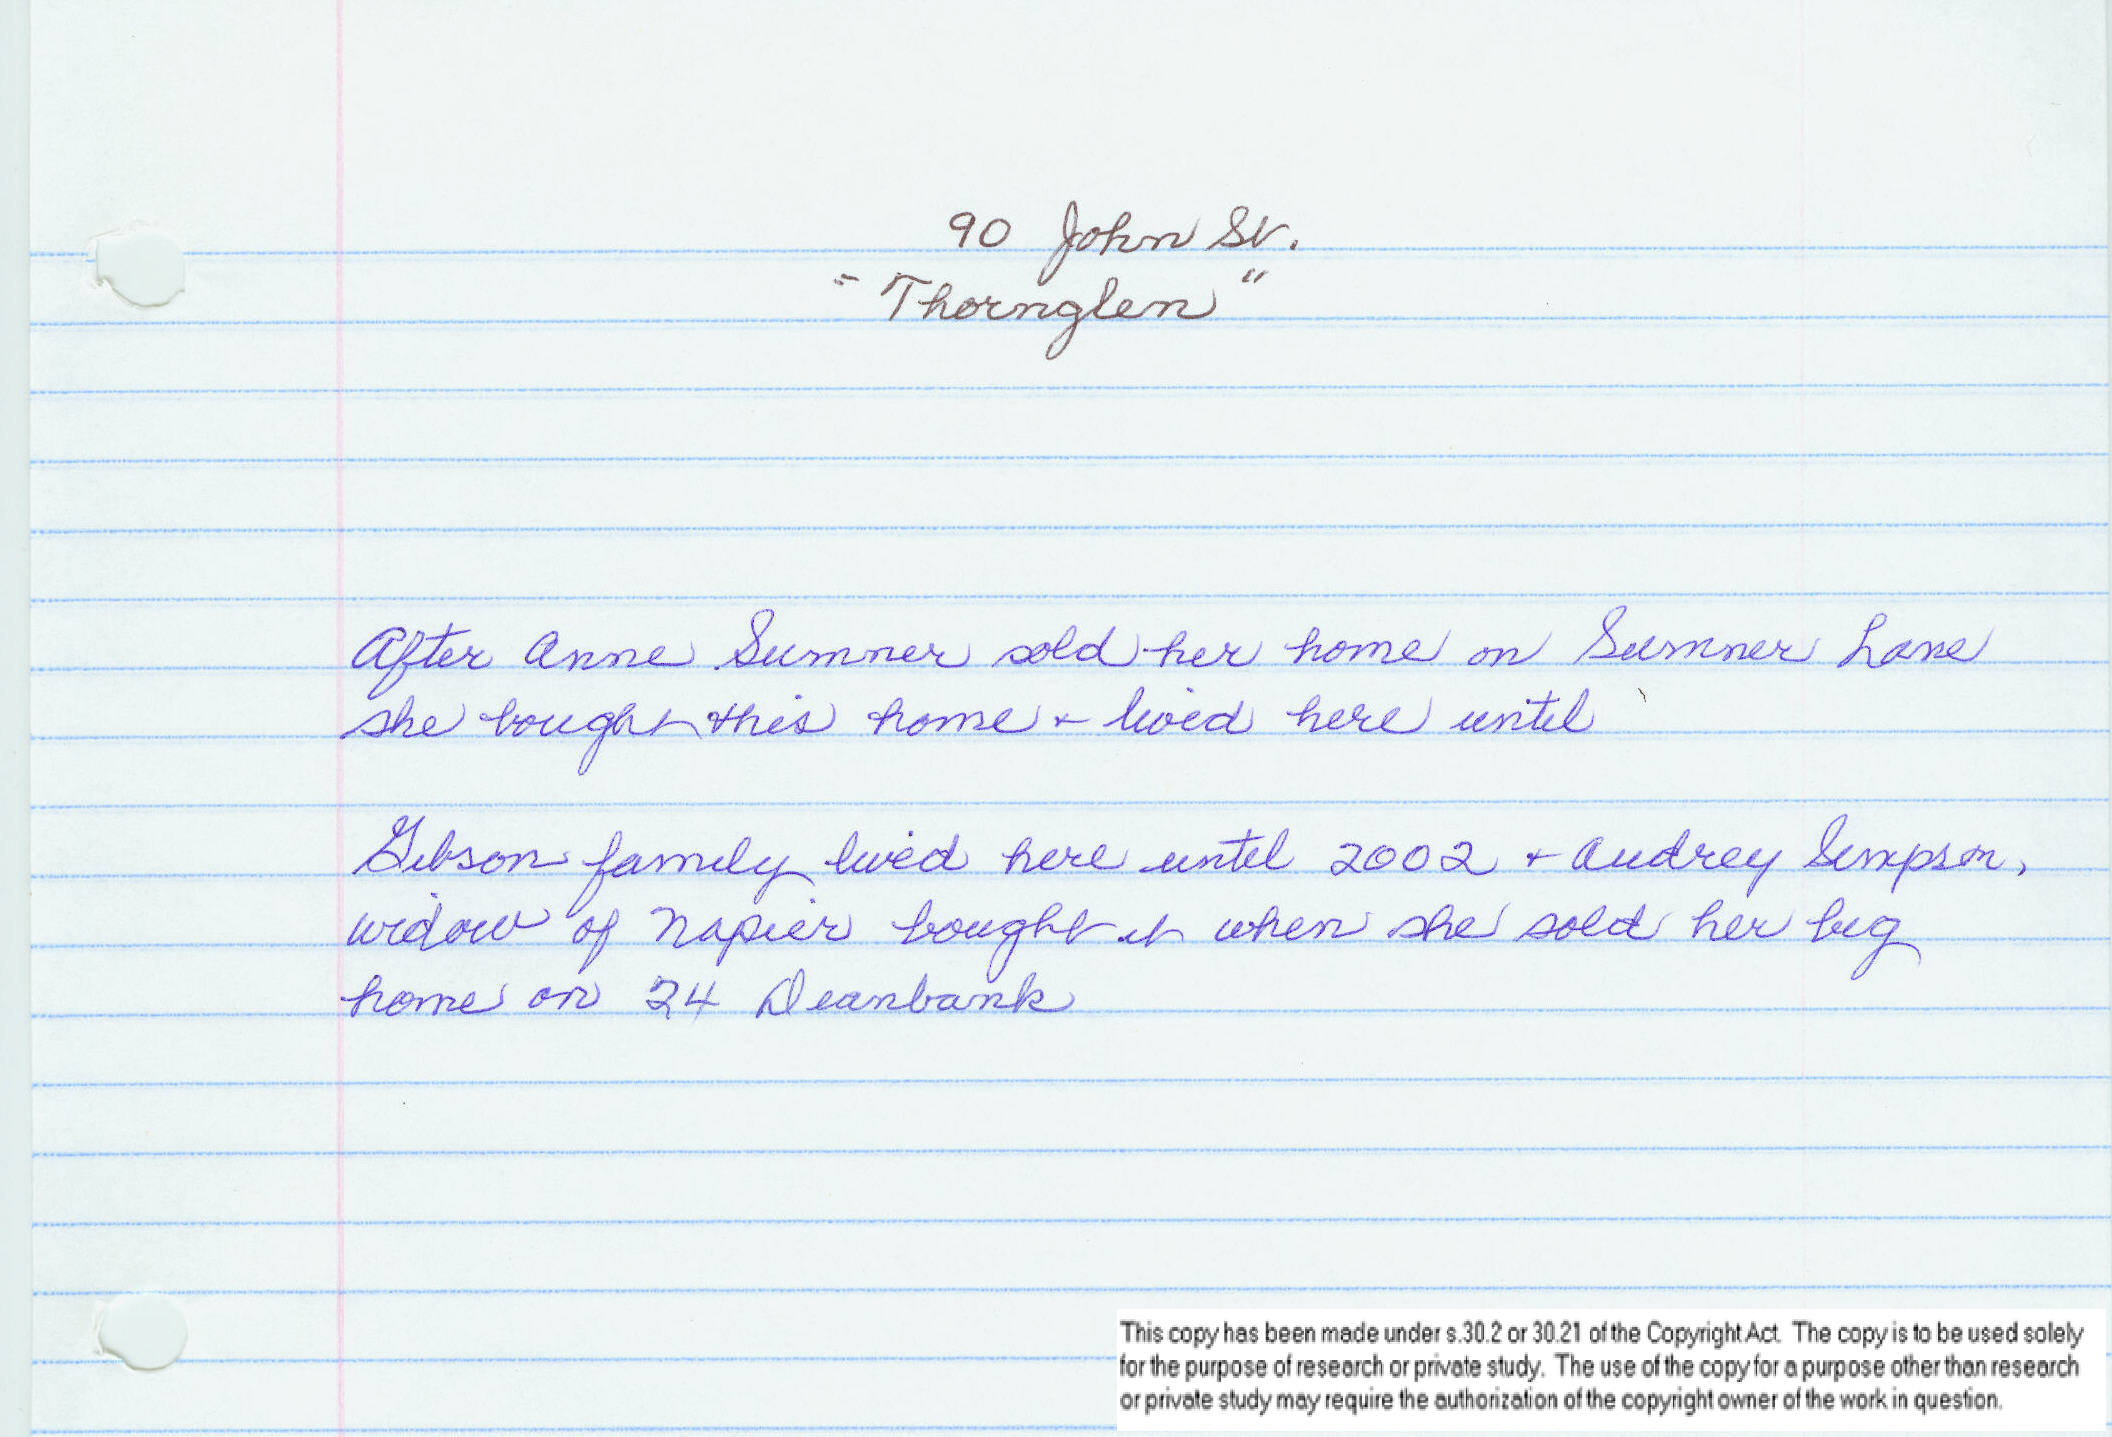 90 John St.
"Thornglen"
After Anne Sumner sold her home on Sumner Lane
she bought this home + lived here until
Gibson family lived here until 2002 + Audrey Simpson,
widow of Napier bought it when she sold her big
home on 24 Deanbank
This copy has been made under s.30.2 or 30.21 of the Copyright Act. The copy is to be used solely
for the purpose of research or private study. The use of the copy for a purpose other than research
or private study may require the authorization of the copyright owner of the work in question.